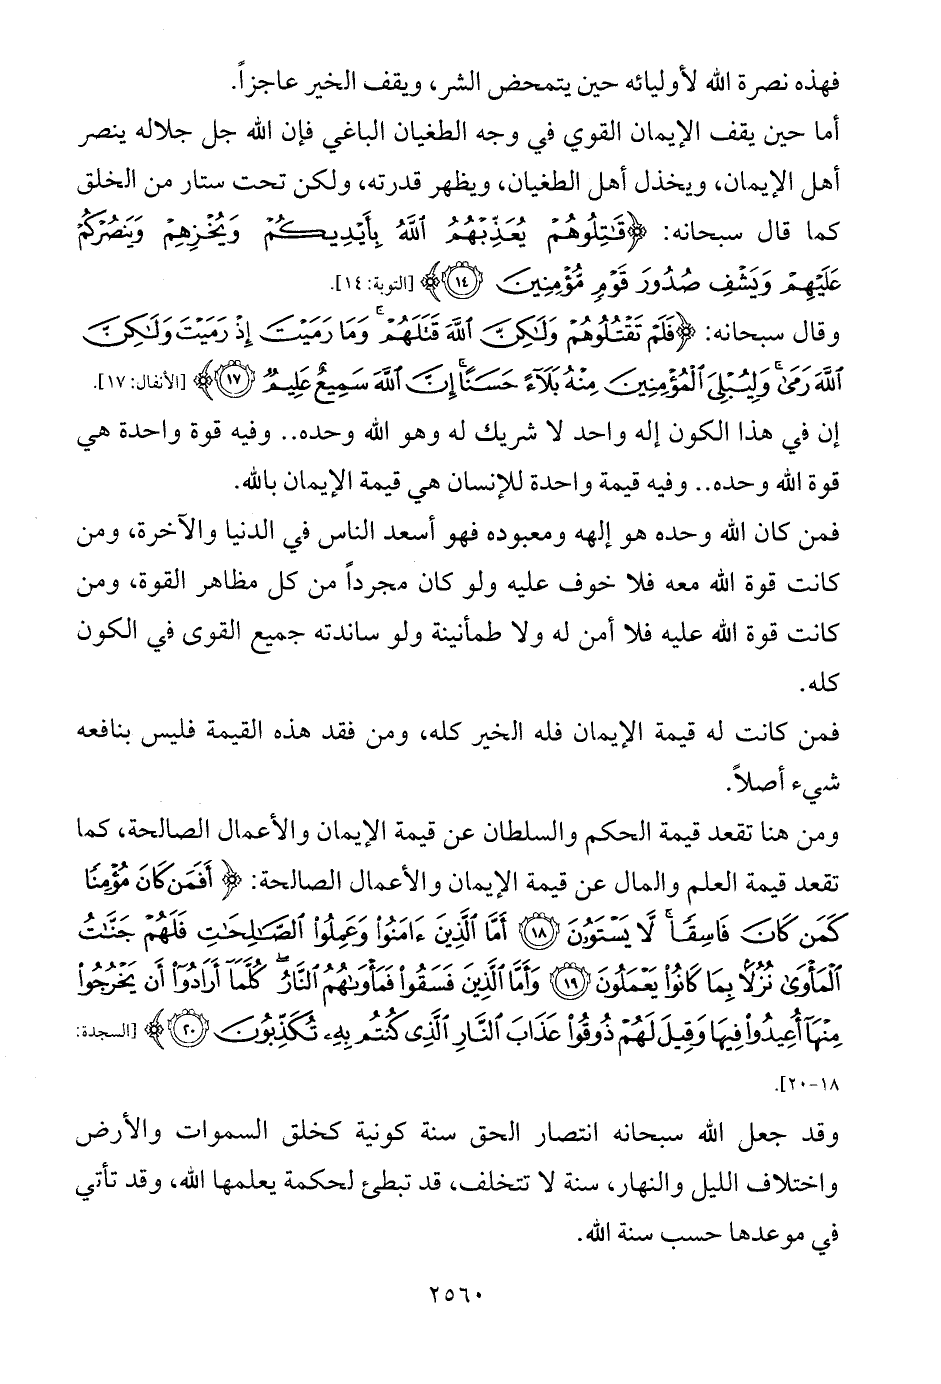 فهذه نصرة الله لأوليائه حين يتمحض الشر، ويقف الخير عاجزاً.
أما حين يقف الإيمان القوي في وجه الطغيان الباغي فإن الله جل جلاله ينصر
أهل الإيمان، ويخذل أهل الطغيان، ويظهر قدرته، ولكن تحت ستار من الخلق
كما قال سبحانه: ﴿قَٰتِلُوهُمْ يُعَذِّبْهُمُ ٱللَّهُ بِأَيْدِيكُمْ وَيُخْزِهِمْ وَيَنصُرْكُمْ
عَلَيْهِمْ وَيَشْفِ صُدُورَ قَوْمٍ مُّؤْمِنِينَ ١٤﴾ [التوبة: ١٤].
وقال سبحانه: ﴿فَلَمْ تَقْتُلُوهُمْ وَلَٰكِنَّ ٱللَّهَ قَتَلَهُمْ ۚ وَمَا رَمَيْتَ إِذْ رَمَيْتَ وَلَٰكِنَّ
ٱللَّهَ رَمَىٰ ۚ وَلِيُبْلِىَ ٱلْمُؤْمِنِينَ مِنْهُ بَلَآءً حَسَنًا ۚ إِنَّ ٱللَّهَ سَمِيعٌ عَلِيمٌ ١٧﴾ [الأنفال: ١٧].
إن في هذا الكون إله واحد لا شريك له وهو الله وحده.. وفيه قوة واحدة هي
قوة الله وحده.. وفيه قيمة واحدة للإنسان هي قيمة الإيمان بالله.
فمن كان الله وحده هو إلهه ومعبوده فهو أسعد الناس في الدنيا والآخرة، ومن
كانت قوة الله معه فلا خوف عليه ولو كان مجرداً من كل مظاهر القوة، ومن
كانت قوة الله عليه فلا أمن له ولا طمأنينة ولو ساندته جميع القوى في الكون
كله.
فمن كانت له قيمة الإيمان فله الخير كله، ومن فقد هذه القيمة فليس بنافعه
شيء أصلاً.
ومن هنا تقعد قيمة الحكم والسلطان عن قيمة الإيمان والأعمال الصالحة، كما
تقعد قيمة العلم والمال عن قيمة الإيمان والأعمال الصالحة: ﴿أَفَمَن كَانَ مُؤْمِنًا
كَمَن كَانَ فَاسِقًا ۚ لَّا يَسْتَوُۥنَ ١٨ أَمَّا ٱلَّذِينَ ءَامَنُوا۟ وَعَمِلُوا۟ ٱلصَّٰلِحَٰتِ فَلَهُمْ جَنَّٰتُ
ٱلْمَأْوَىٰ نُزُلًۢا بِمَا كَانُوا۟ يَعْمَلُونَ ١٩ وَأَمَّا ٱلَّذِينَ فَسَقُوا۟ فَمَأْوَىٰهُمُ ٱلنَّارُ ۖ كُلَّمَآ أَرَادُوٓا۟ أَن يَخْرُجُوا۟
مِنْهَآ أُعِيدُوا۟ فِيهَا وَقِيلَ لَهُمْ ذُوقُوا۟ عَذَابَ ٱلنَّارِ ٱلَّذِى كُنتُم بِهِۦ تُكَذِّبُونَ ٢٠﴾ [السجدة:
١٨-٢٠].
وقد جعل الله سبحانه انتصار الحق سنة كونية كخلق السموات والأرض
واختلاف الليل والنهار، سنة لا تتخلف، قد تبطئ لحكمة يعلمها الله، وقد تأتي
في موعدها حسب سنة الله.
٢٥٦٠